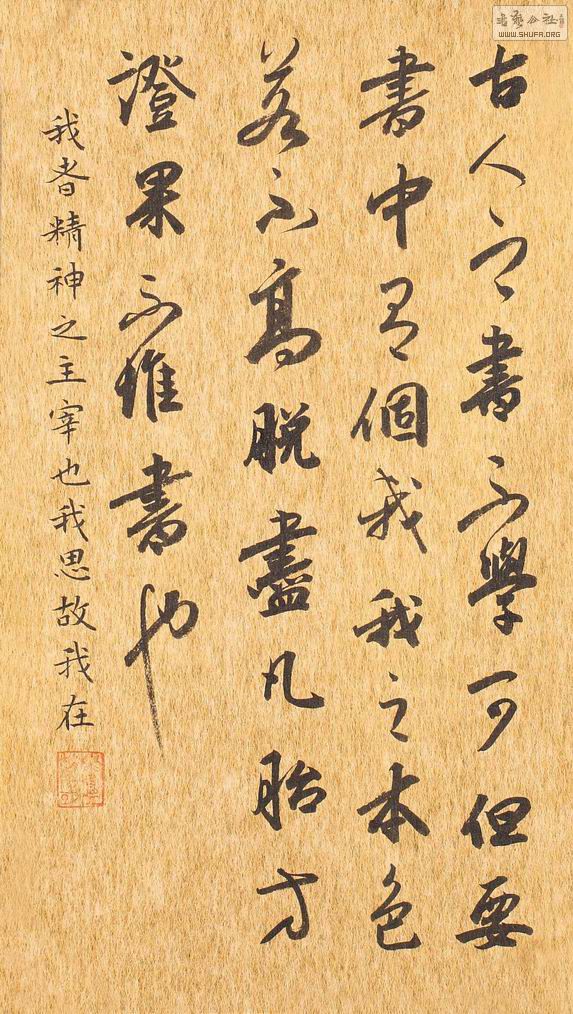 書藝公社
WWW.SHUFA.ORG
古人之書不學可但要
書中有個我我之本色
若不高脫盡凡胎方
證果不惟書也
我者精神之主宰也我思故我在